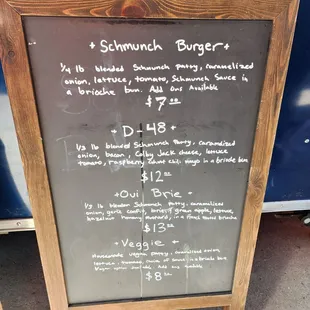 Schmunch Burger
1/4 lb blended Schmunch patty, caramelized
onion, lettuce, tomato, Schmunch Sauce in
a brioche bun. Add Ons Available
$7.00
D-48
1/3 lb blended Schmunch Patty, caramelized
onion, bacon, Colby Jack cheese, lettuce
tomato, raspberry chili mayo in a brioche bun
$12.00
Oui Brie
1/3 lb blended Schmunch Patty, caramelized
onion, garlic confit, brie, green apple, lettuce,
mustard, in a bun
$13.00
Veggie
Homemade vegan patty, caramelized onion,
lettuce, tomato, in a brioche bun
Vegan Add Ons available
$8